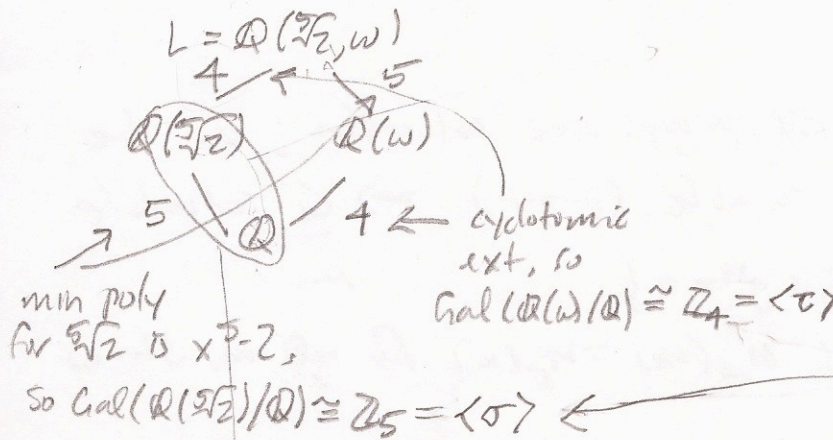 L = ℚ(⁵√2, ω)
4 5
ℚ(⁵√2) ℚ(ω)
5 ℚ 4 ← cyclotomic
ext, so
Gal(ℚ(ω)/ℚ) ≅ ℤ₄ = <τ>
min poly
for ⁵√2 is x⁵-2,
so Gal(ℚ(⁵√2)/ℚ) ≅ ℤ₅ = <σ> ←